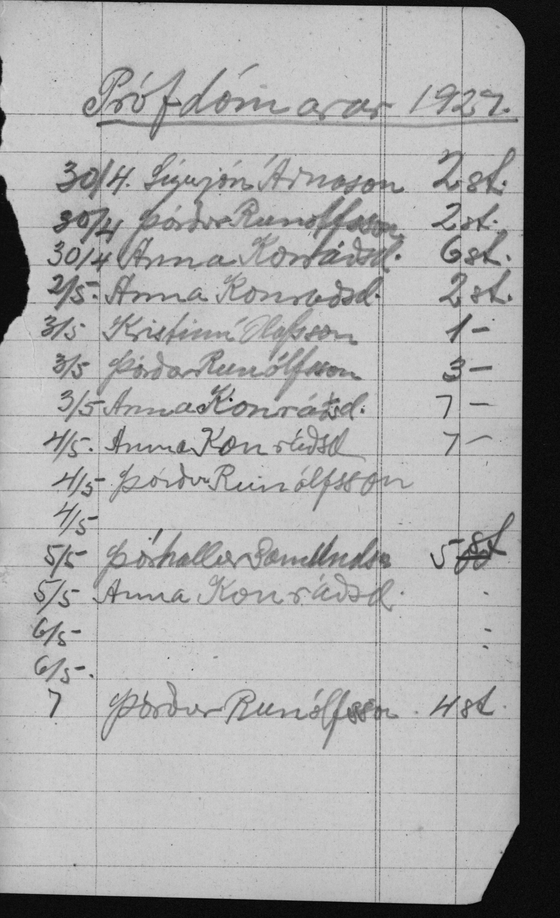 Prófdómarar 1927.
30/4. Sigurjón Árnason 2 st.
30/4 Þórður Runólfsson 2 st.
30/4 Anna Konráðsd. 6 st.
2/5. Anna Konráðsd. 2 st.
3/5 Kristinn Ólafsson 1 –
3/5 Þórður Runólfsson 3 –
3/5 Anna Konráðsd. 7 –
4/5. Anna Konráðsd 7 –
4/5 Þórður Runólfsson
4/5
5/5 Þórhallur Sæmundss 5 st
5/5 Anna Konráðsd.
6/5
6/5.
7 Þórður Runólfsson 4 st.